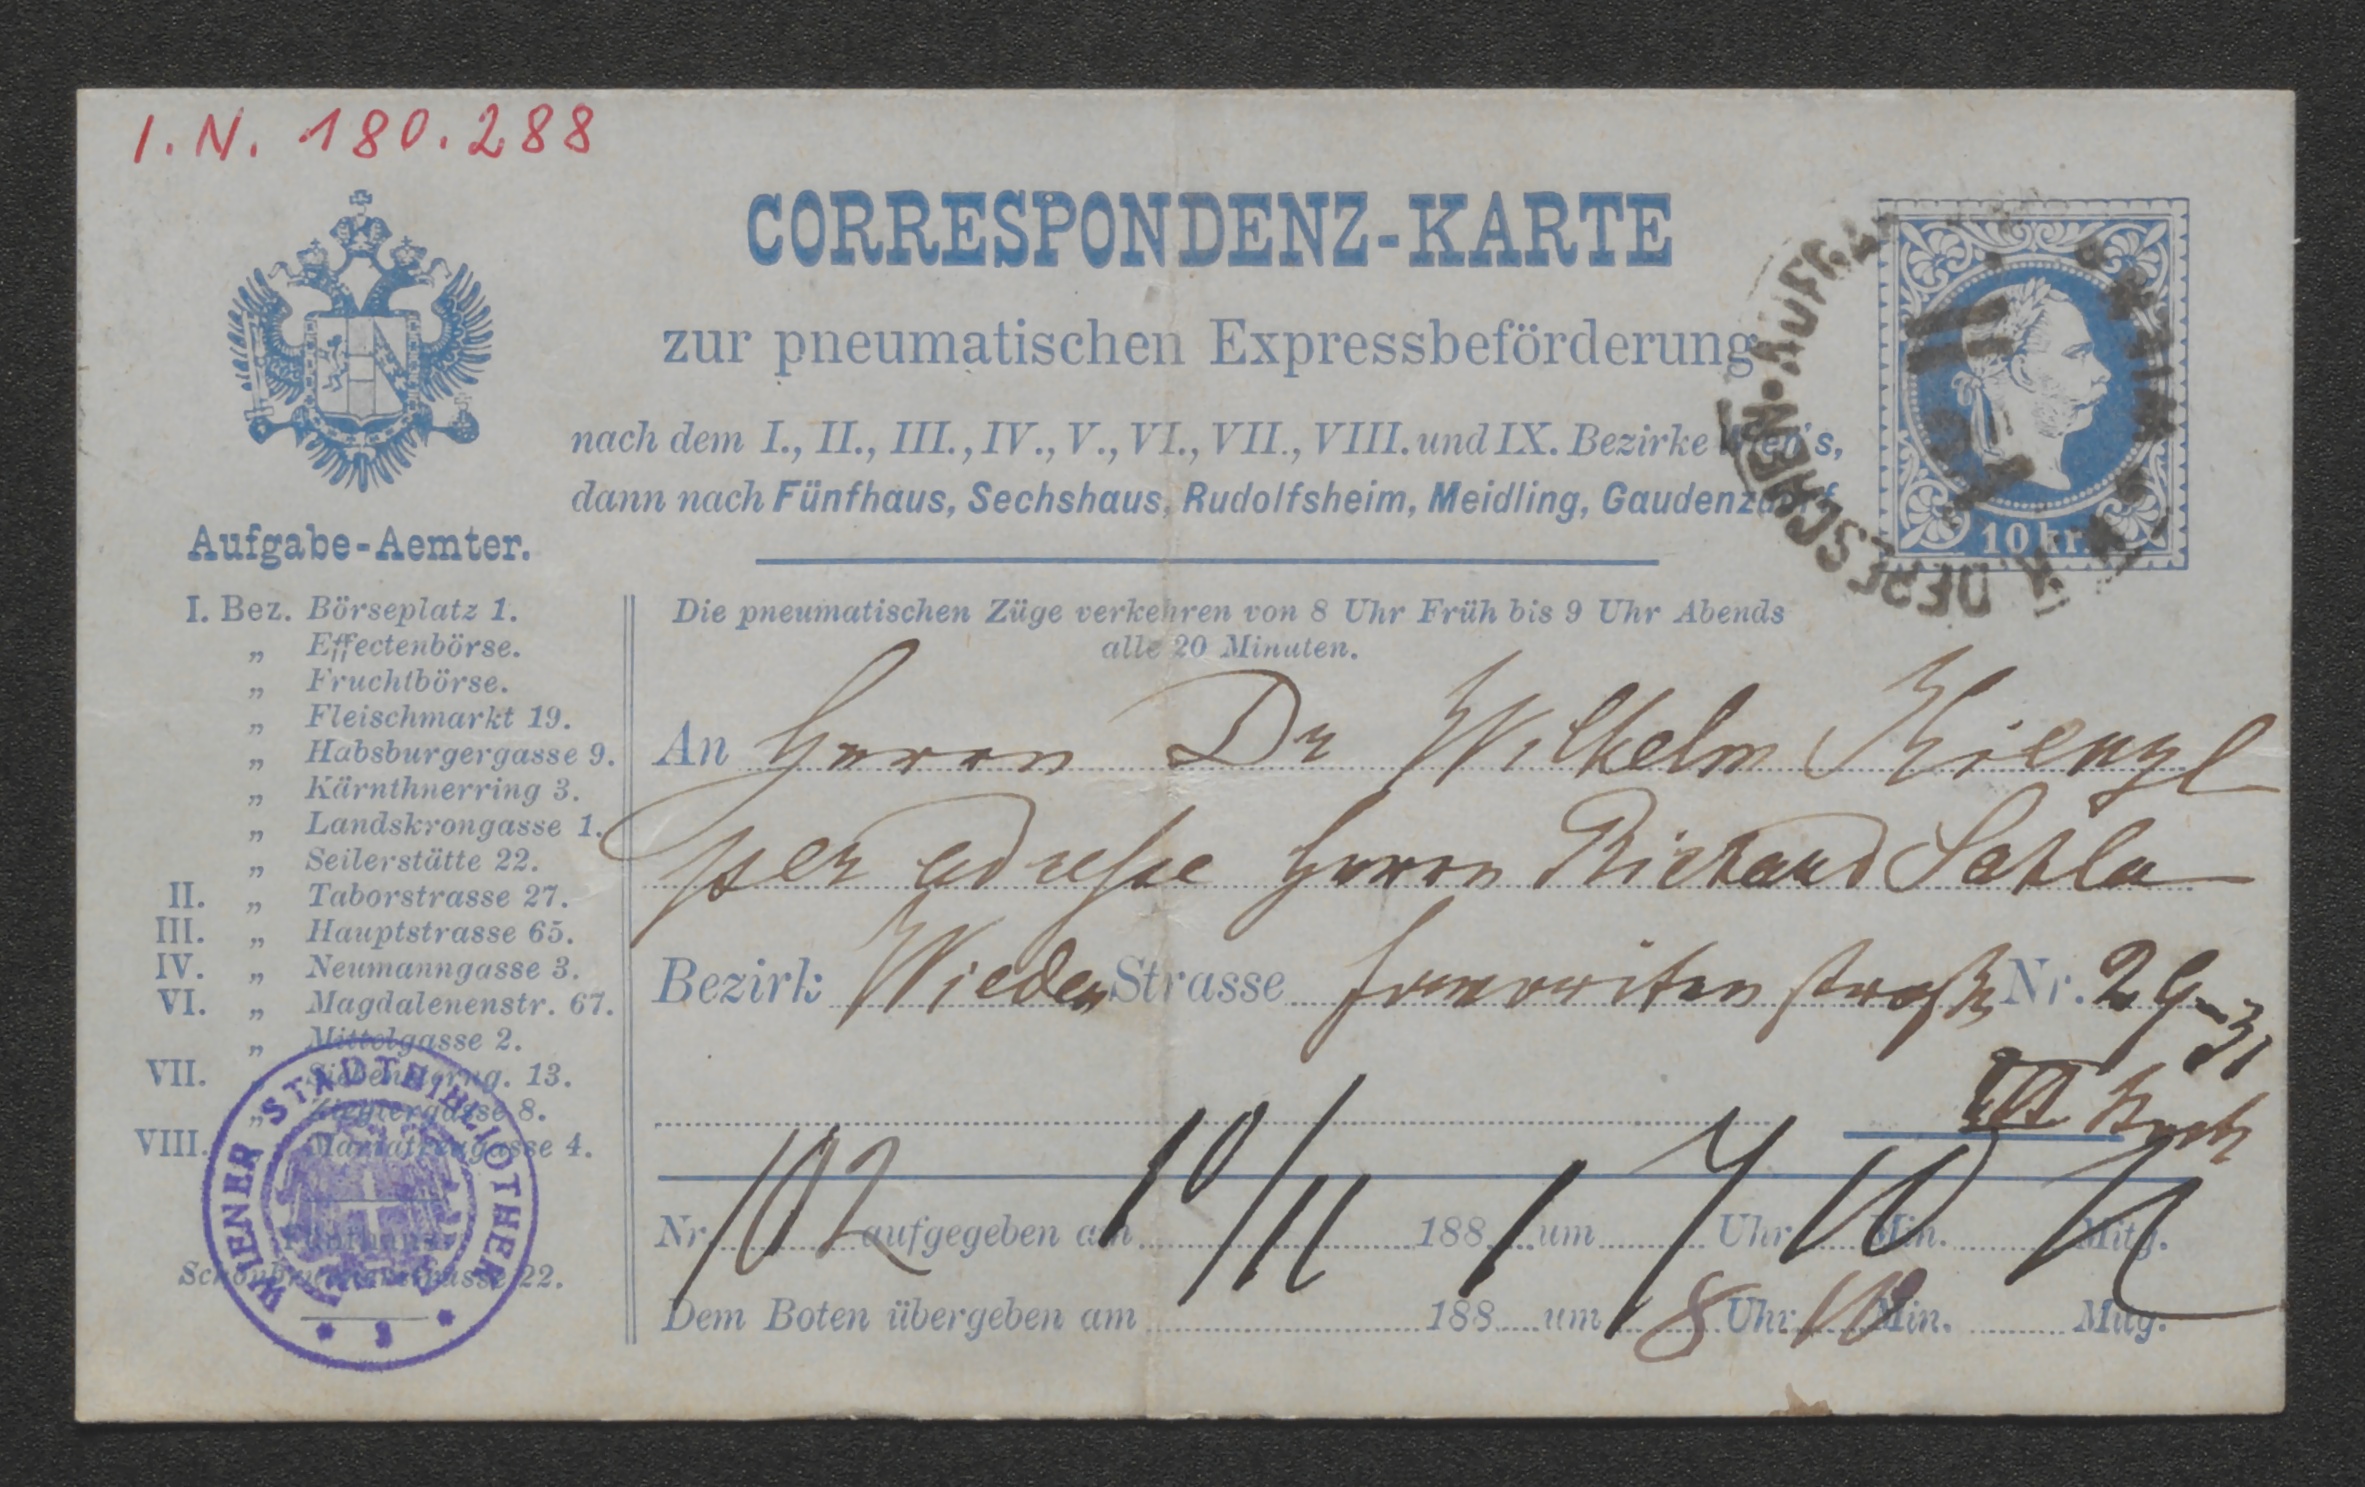 I.N. 180.288
CORRESPONDENZ-KARTE
zur pneumatischen Expressbeförderung
nach dem I., II., III., IV., V., VI., VII., VIII. und IX. Bezirke Wien's,
dann nach Fünfhaus, Sechshaus, Rudolfsheim, Meidling, Gaudenzdorf
10 kr.
DEPESCHEN • AUFGA
Aufgabe-Aemter.
I. Bez. Börseplatz 1.
„ Effectenbörse.
„ Fruchtbörse.
„ Fleischmarkt 19.
„ Habsburgergasse 9.
„ Kärnthnerring 3.
„ Landskrongasse 1.
„ Seilerstätte 22.
II. „ Taborstrasse 27.
III. „ Hauptstrasse 65.
IV. „ Neumanngasse 3.
VI. „ Magdalenenstr. 67.
„ Mittelgasse 2.
VII. „ Siebensterng. 13.
„ Zieglergasse 8.
VIII. „ Mariatreugasse 4.
Fünfhaus
Schönbrunnerstrasse 22.
WIENER STADTBIBLIOTHEK
Die pneumatischen Züge verkehren von 8 Uhr Früh bis 9 Uhr Abends
alle 20 Minuten.
An Herrn Dr Wilhelm Kienzl
per adresse Herrn Richard Sahla
Bezirk Wieden Strasse Favoritenstraße Nr. 29-31
III Stock
Nr 102 aufgegeben am 10/11 188 1 um 7 Uhr 10 Min. Mitg.
Dem Boten übergeben am 188 um 8 Uhr 10 Min. Mitg.